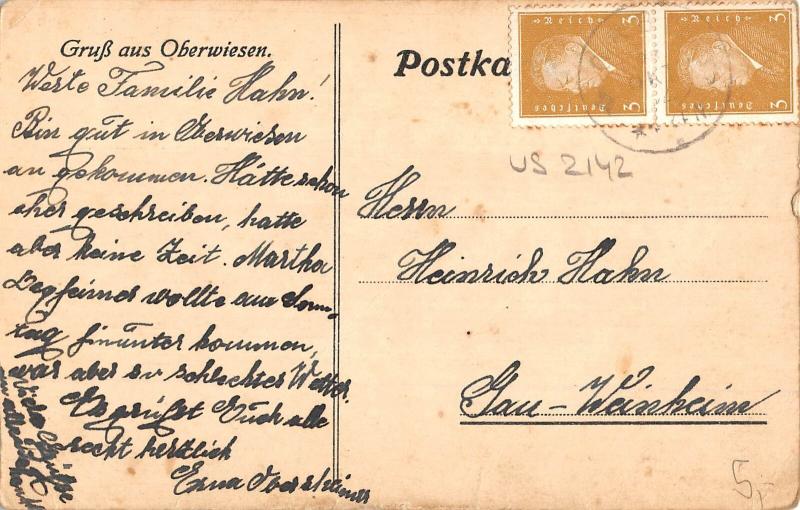 Gruß aus Oberwiesen.
Werte Familie Hahn!
Bin gut in Oberwiesen
an gekommen. Hätte schon
eher geschreiben, hatte
aber keine Zeit. Martha
wollte am Sonn-
tag hinunter kommen,
war aber so schlechtes Wetter.
Es grüßt Euch alle
recht herzlich
Erna Obersheimer
Postka
Deutsches Reich 3
Deutsches Reich 3
US 2142
Herrn
Heinrich Hahn
Gau-Weinheim
5,-